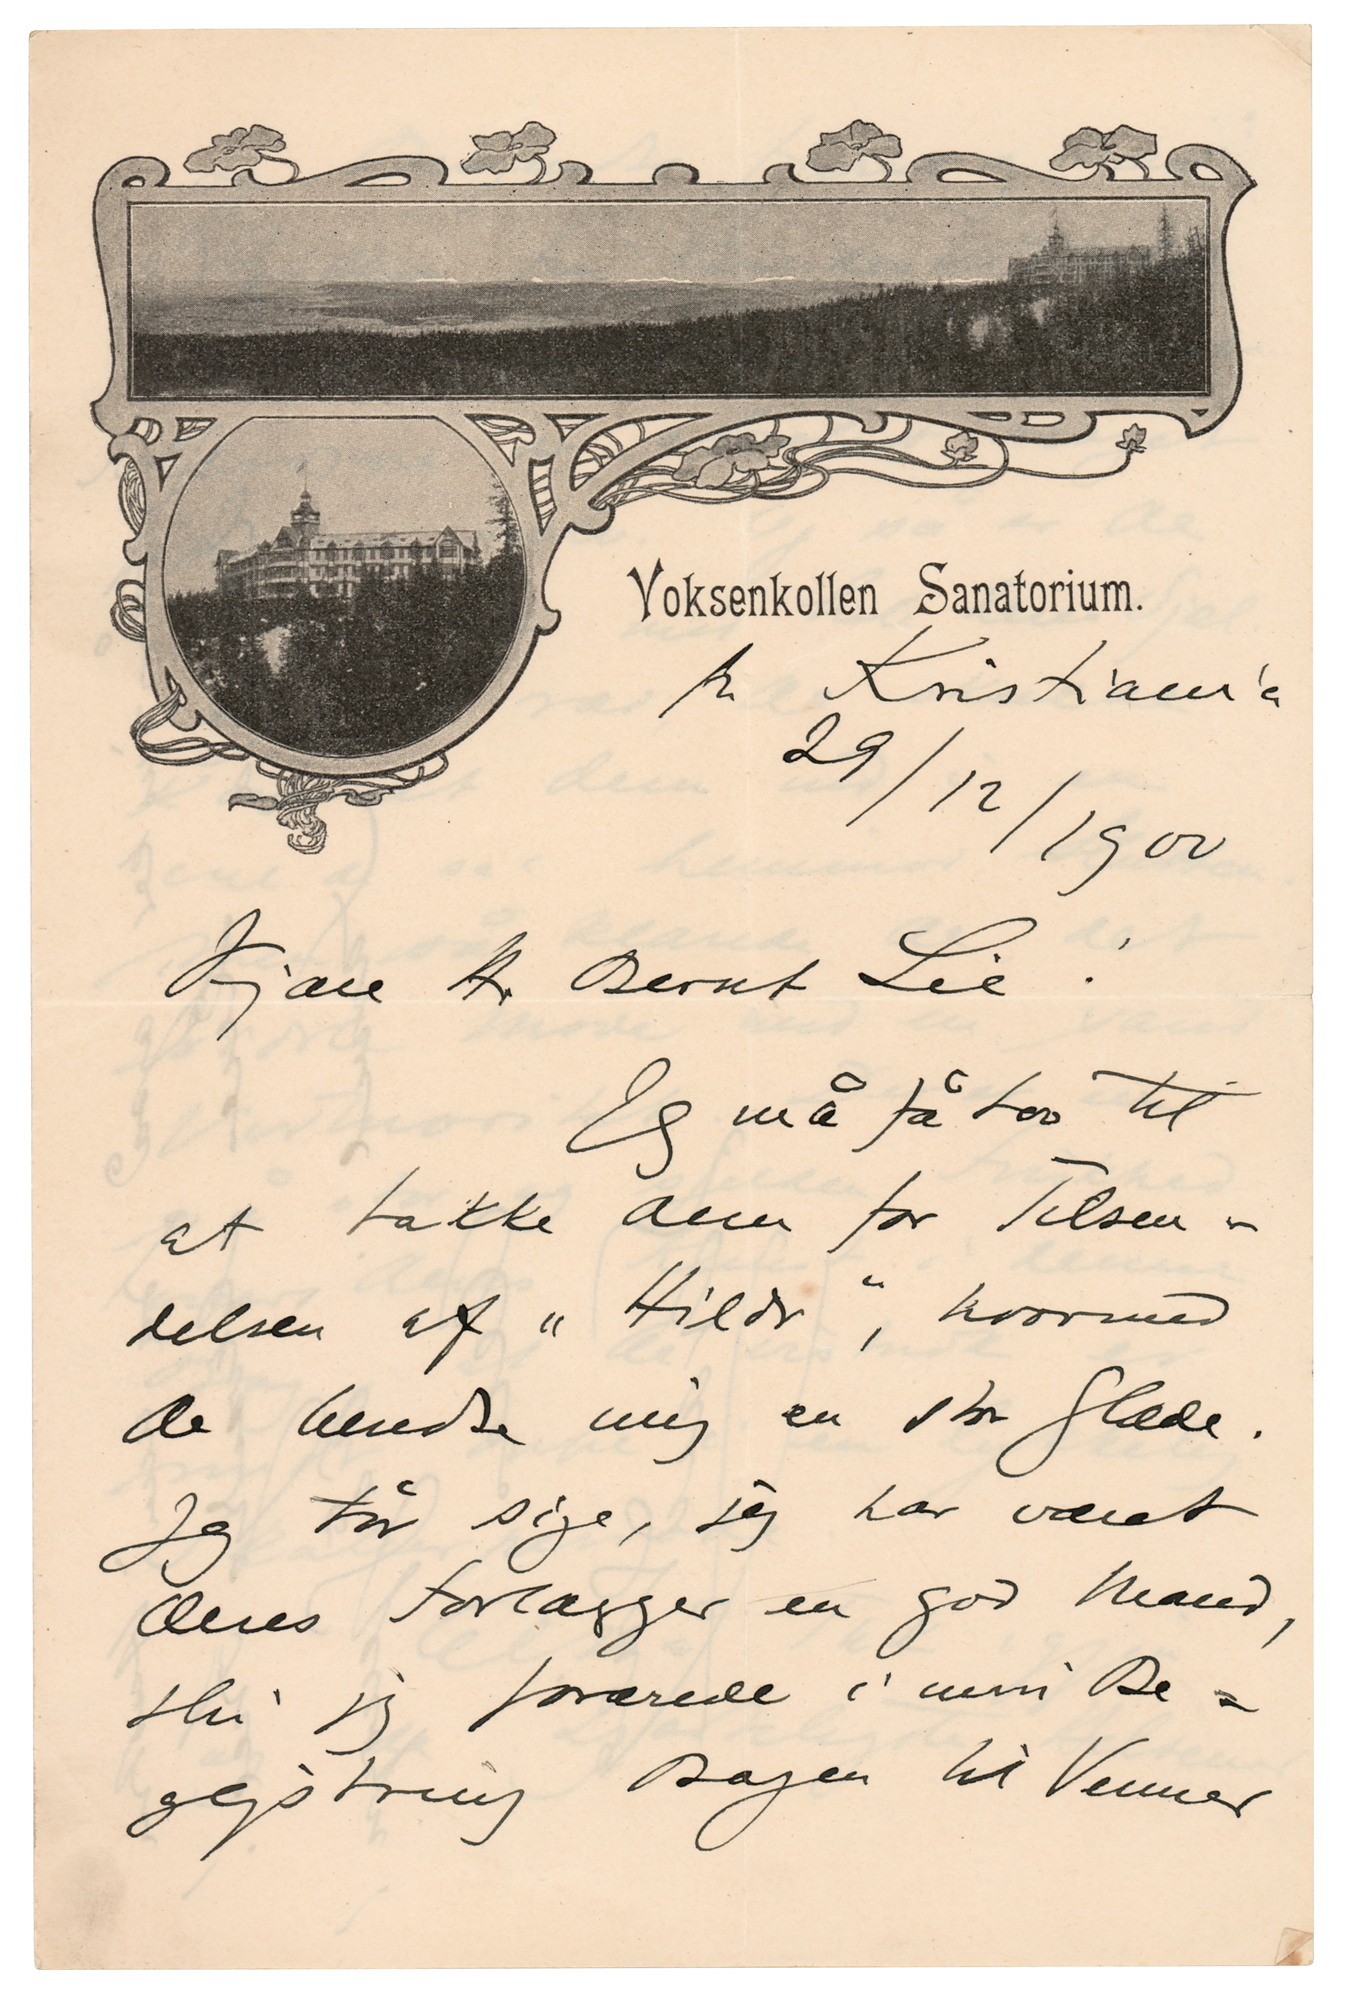 Voksenkollen Sanatorium.
pr Kristiania
29/12/1900
Kjære Hr Bernt Lie!
Jeg må få Lov til
at takke Dem for Tilsen-
delsen af „Hildr“, hvormed
De beredte mig en stor Glæde.
Jeg tør sige, jeg har været
Deres Forlægger en god Mand,
thi jeg forærede i min Be-
gejstring Bogen til Venner